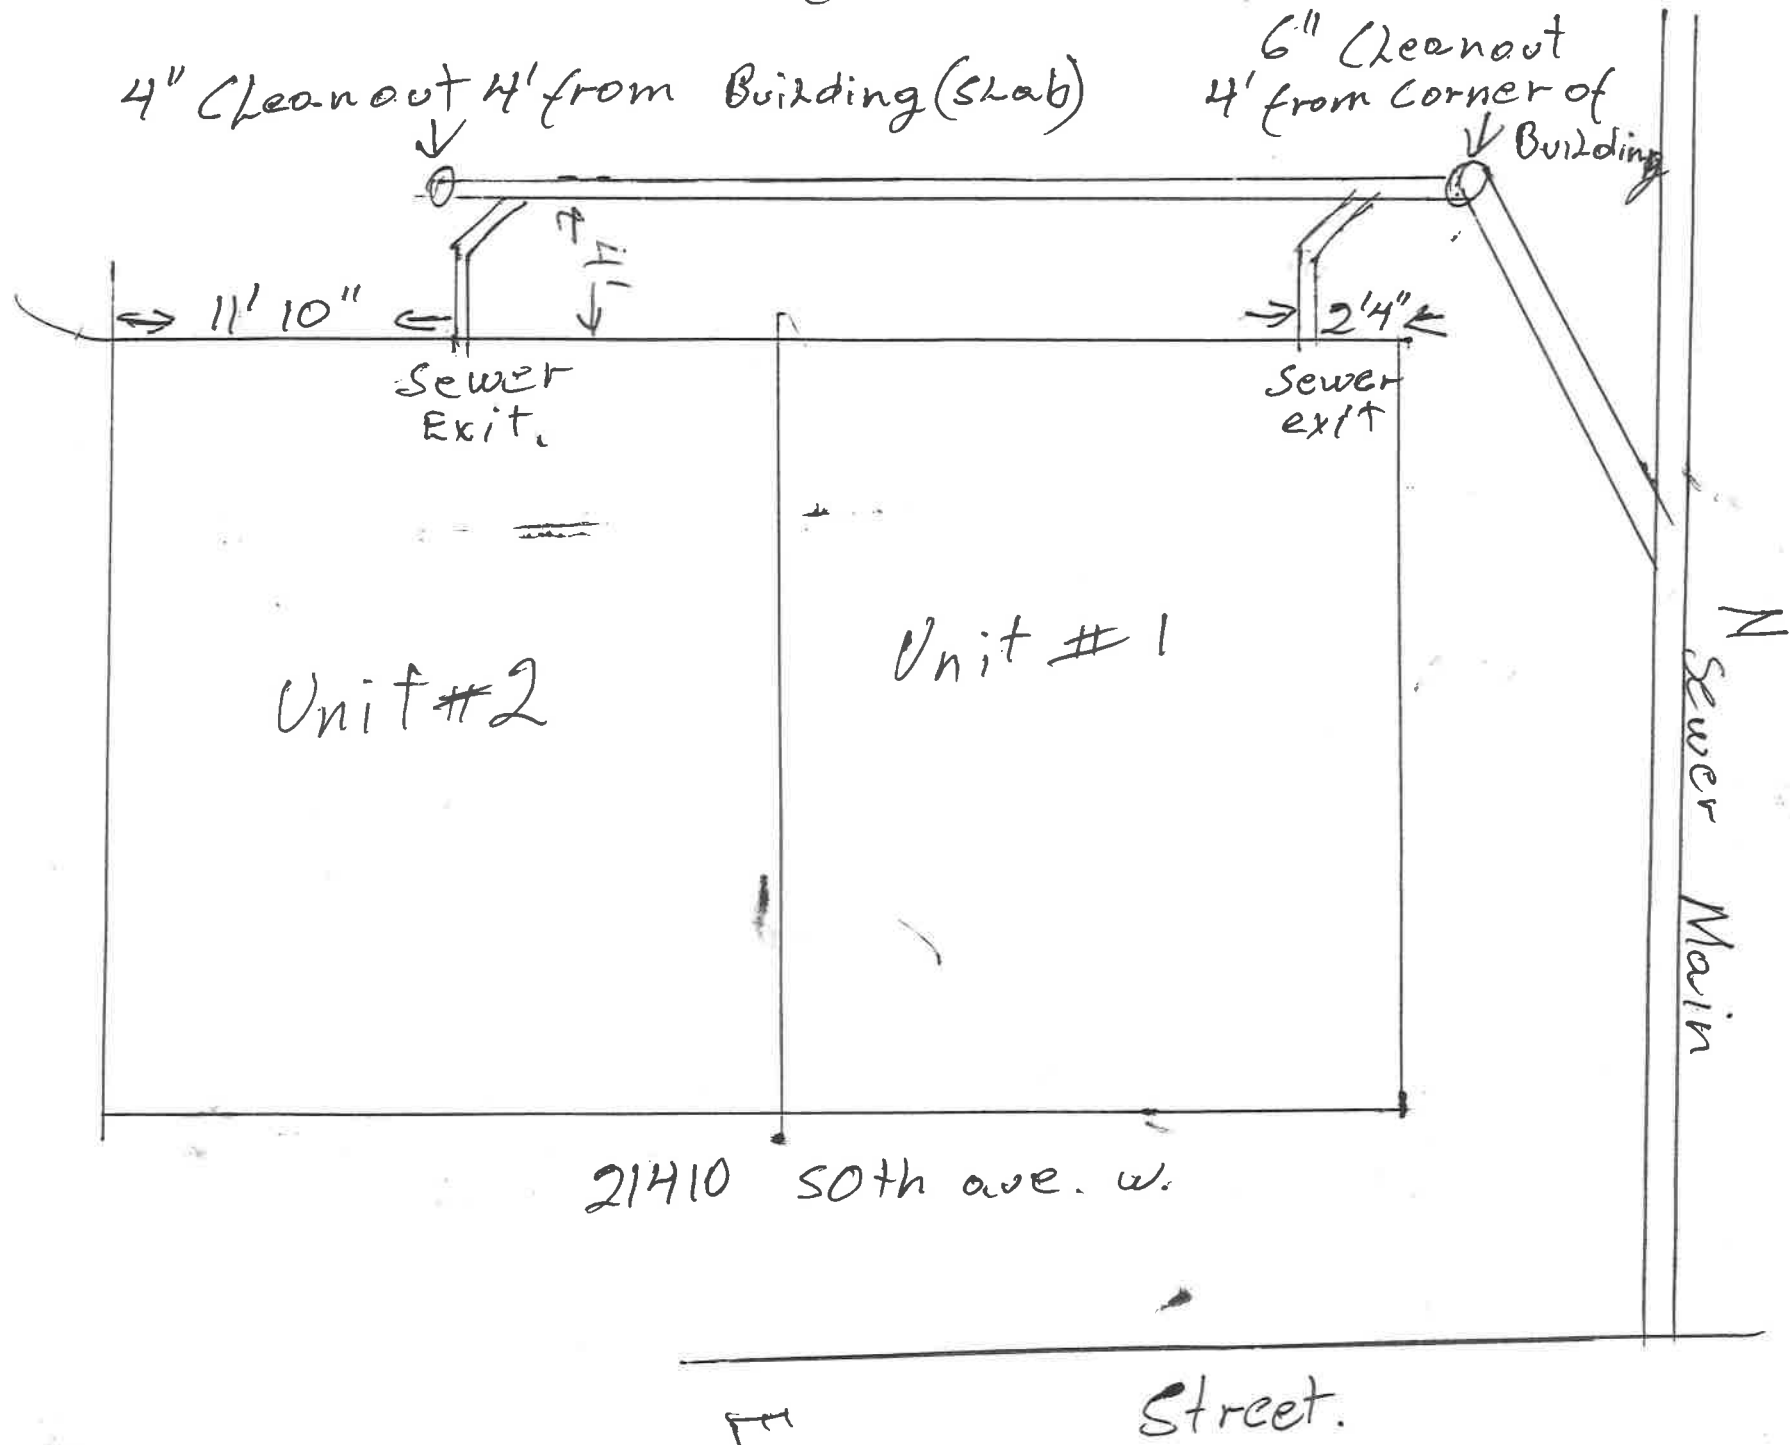 4" Cleanout 4' from Building (Slab)
6" Cleanout
4' from Corner of
Building
4'
11' 10"
2'4"
Sewer
Exit.
Sewer
exit
Unit #2
Unit # 1
N
Sewer Main
21410 50th ave. w.
Street.
E